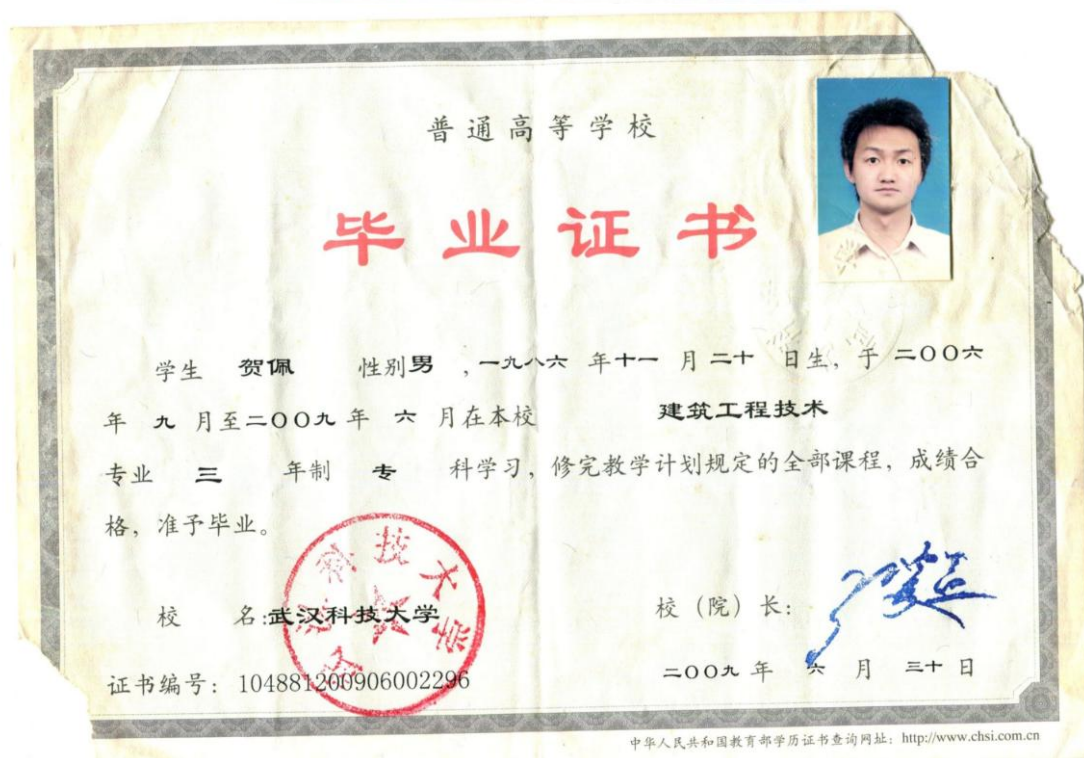 普通高等学校
毕业证书
学生 贺佩 性别男,一九八六年十一月二十日生,于二〇〇六
年九月至二〇〇九年六月在本校 建筑工程技术
专业 三 年制 专 科学习,修完教学计划规定的全部课程,成绩合
格,准予毕业。
武汉科技大学
校 名:武汉科技大学
校(院)长:
证书编号:104881200906002296
二〇〇九年六月三十日
中华人民共和国教育部学历证书查询网址:http://www.chsi.com.cn